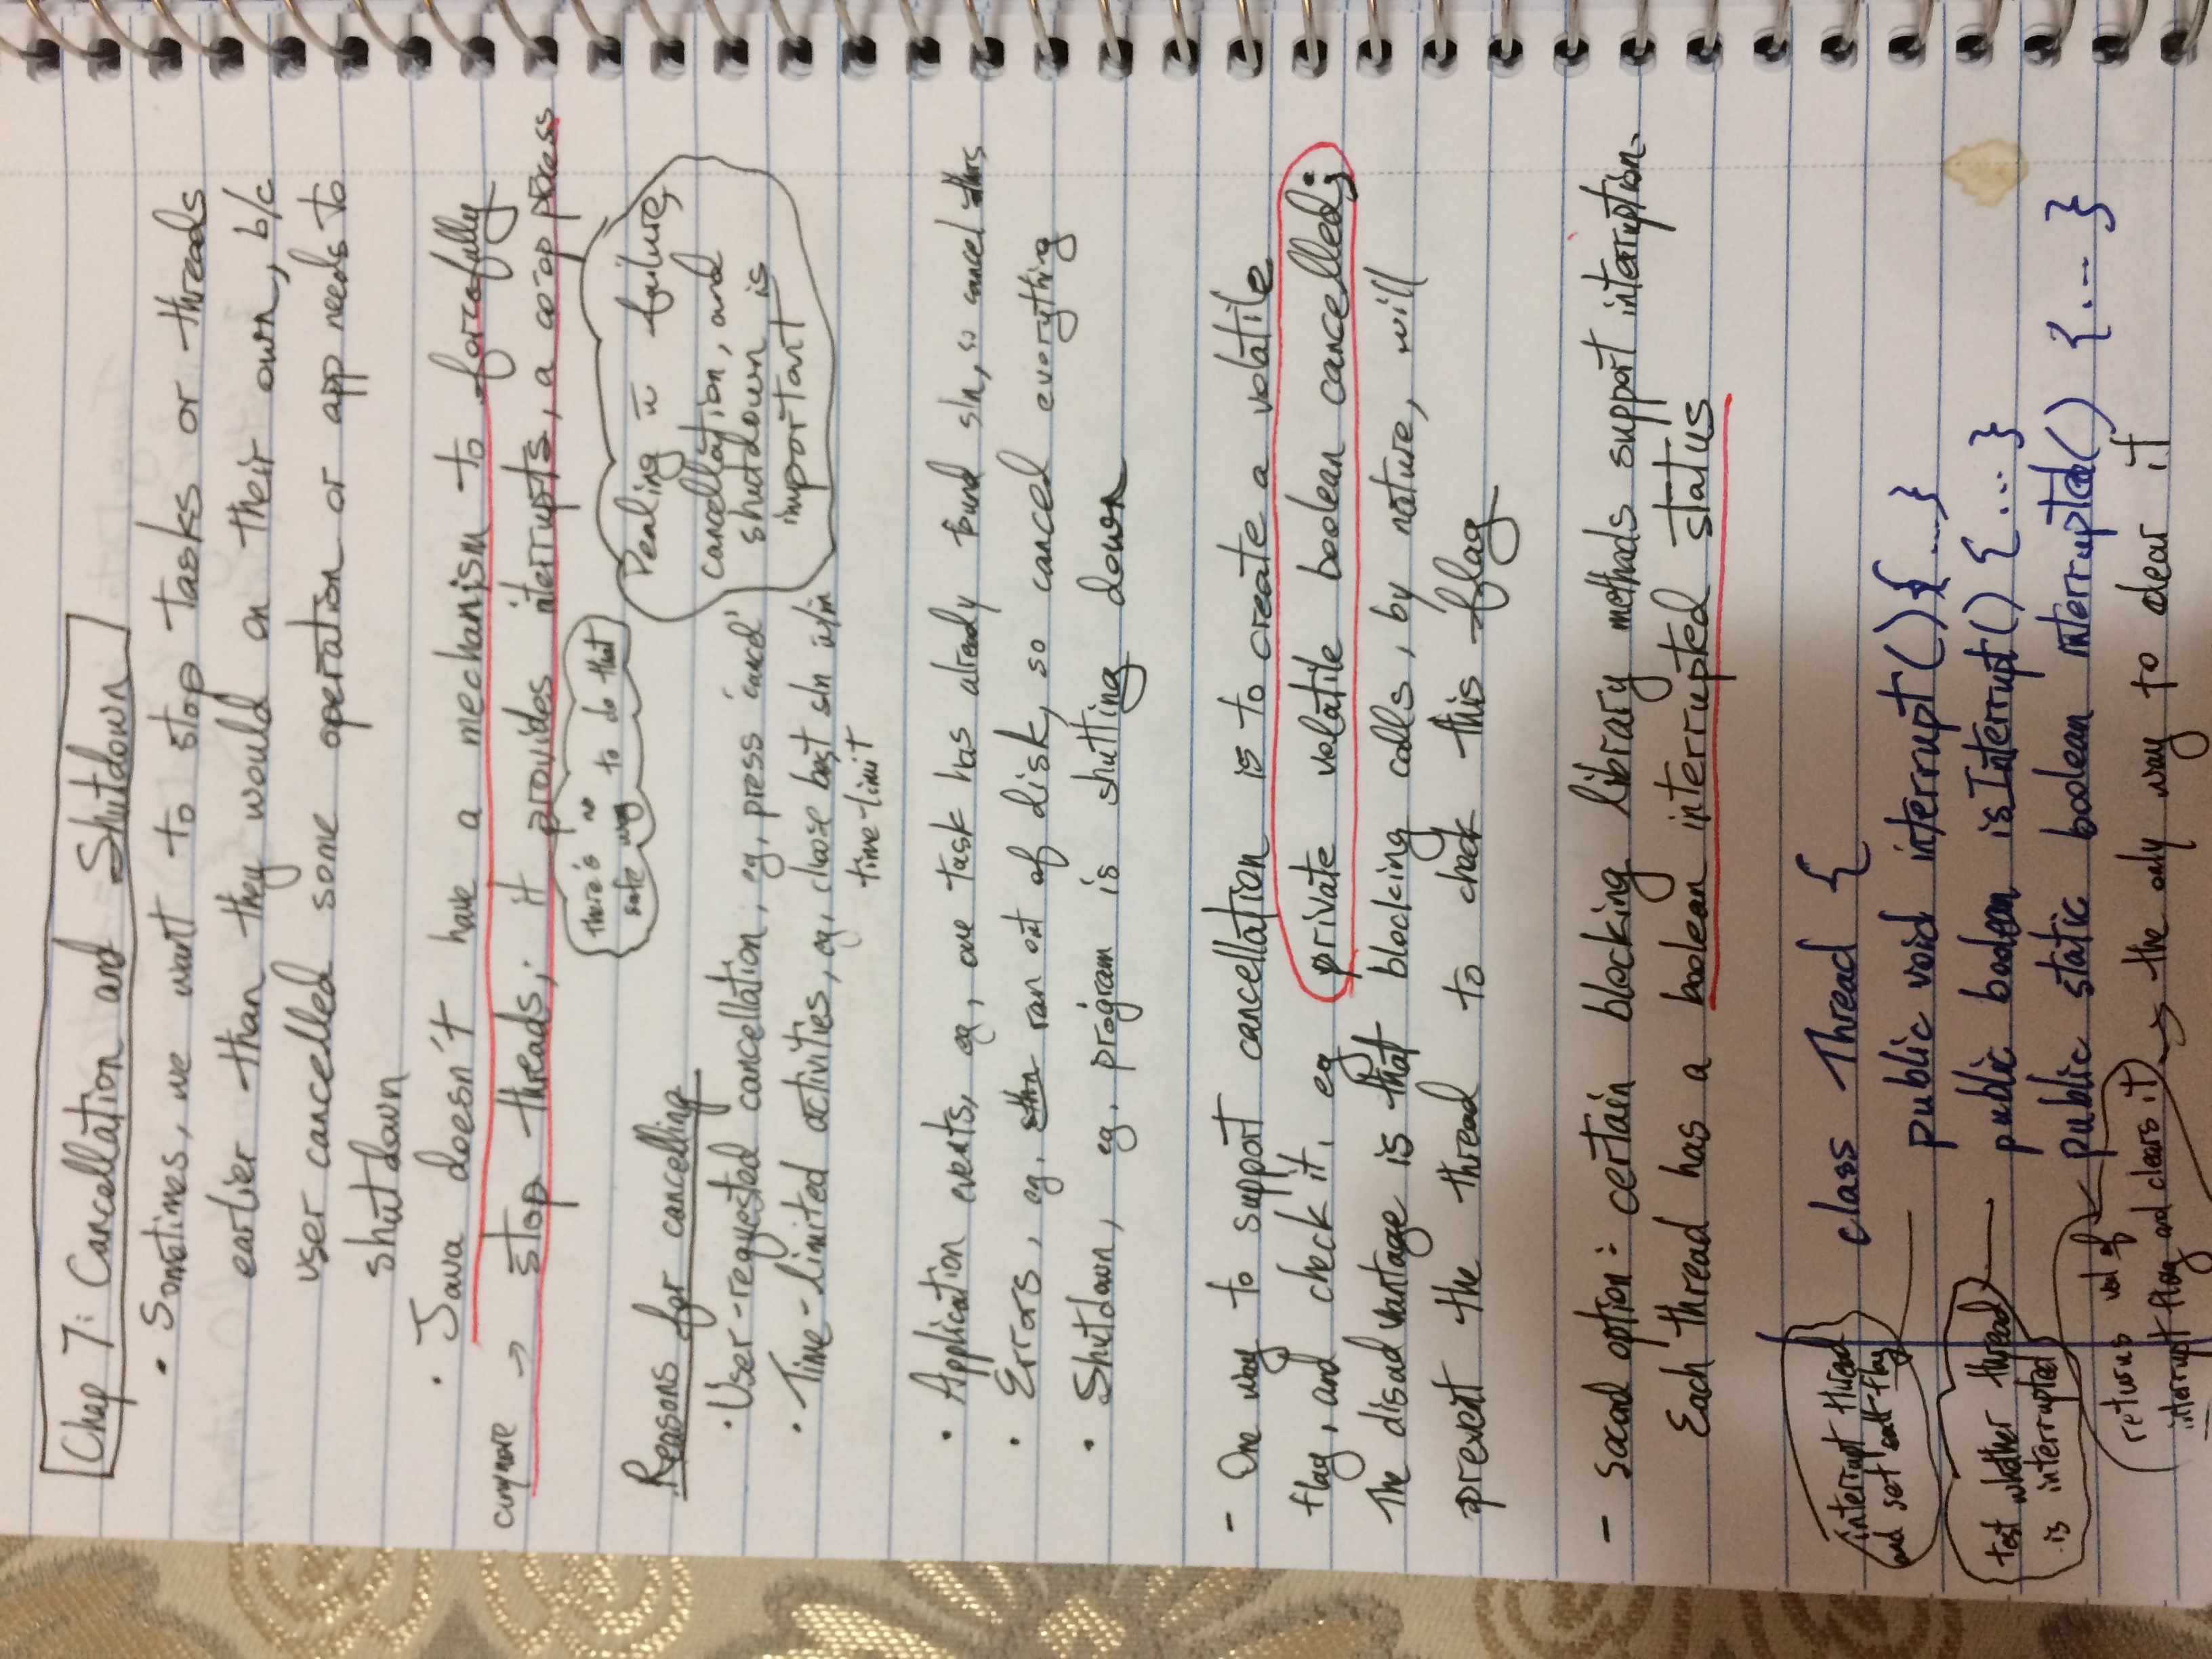 Chap 7: Cancellation and Shutdown
• Sometimes, we want to stop tasks or threads
earlier than they would on their own, b/c
user cancelled some operation or app needs to
shutdown
• Java doesn't have a mechanism to forcefully
anymore → stop threads; it provides interrupts, a co-op process
there's no
safe way to do that
Dealing w failure,
cancellation, and
shutdown is
important
Reasons for cancelling
• User-requested cancellation, eg, press 'cancel'
• Time-limited activities, eg, choose best sln w/in
time-limit
• Application events, eg, one task has already found sln, so cancel others
• Errors, eg. ran out of disk, so cancel everything
• Shutdown, eg. program is shutting down
- One way to support cancellation is to create a volatile
flag, and check it, eg private volatile boolean cancelled;
The disadvantage is that blocking calls, by nature, will
prevent the thread to check this flag
- second option: certain blocking library methods support interruption.
Each thread has a boolean interrupted status
interrupt thread
and set flag
class Thread {
public void interrupt(){...}
test whether thread
is interrupted
public boolean isInterrupt() {...}
public static boolean interrupted() {...}
returns val of
interrupt flag and clears it → the only way to clear it